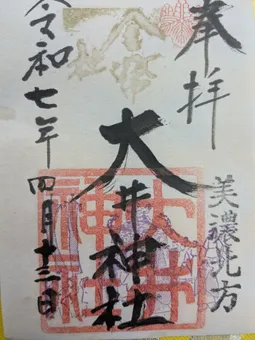 奉拝
美濃北方
大井神社
令和七年四月十三日
大井
神社